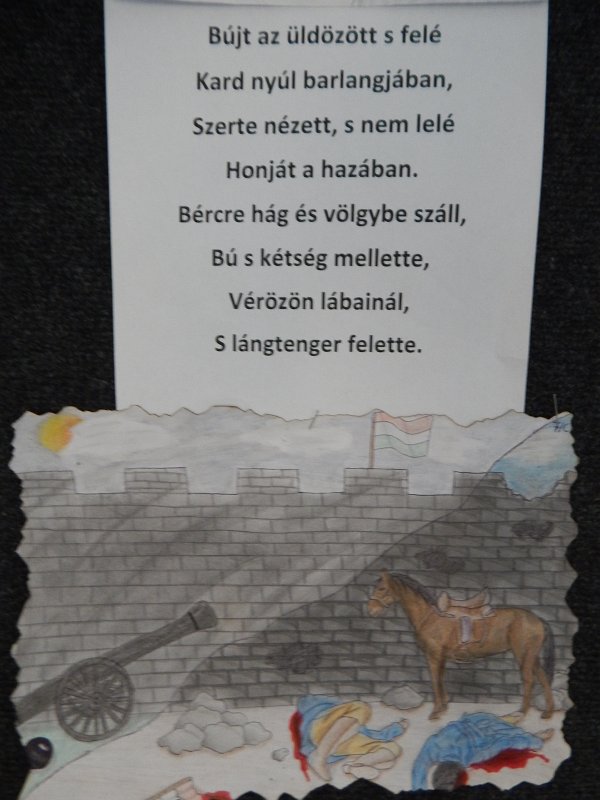 Bújt az üldözött s felé
Kard nyúl barlangjában,
Szerte nézett, s nem lelé
Honját a hazában.
Bércre hág és völgybe száll,
Bú s kétség mellette,
Vérözön lábainál,
S lángtenger felette.